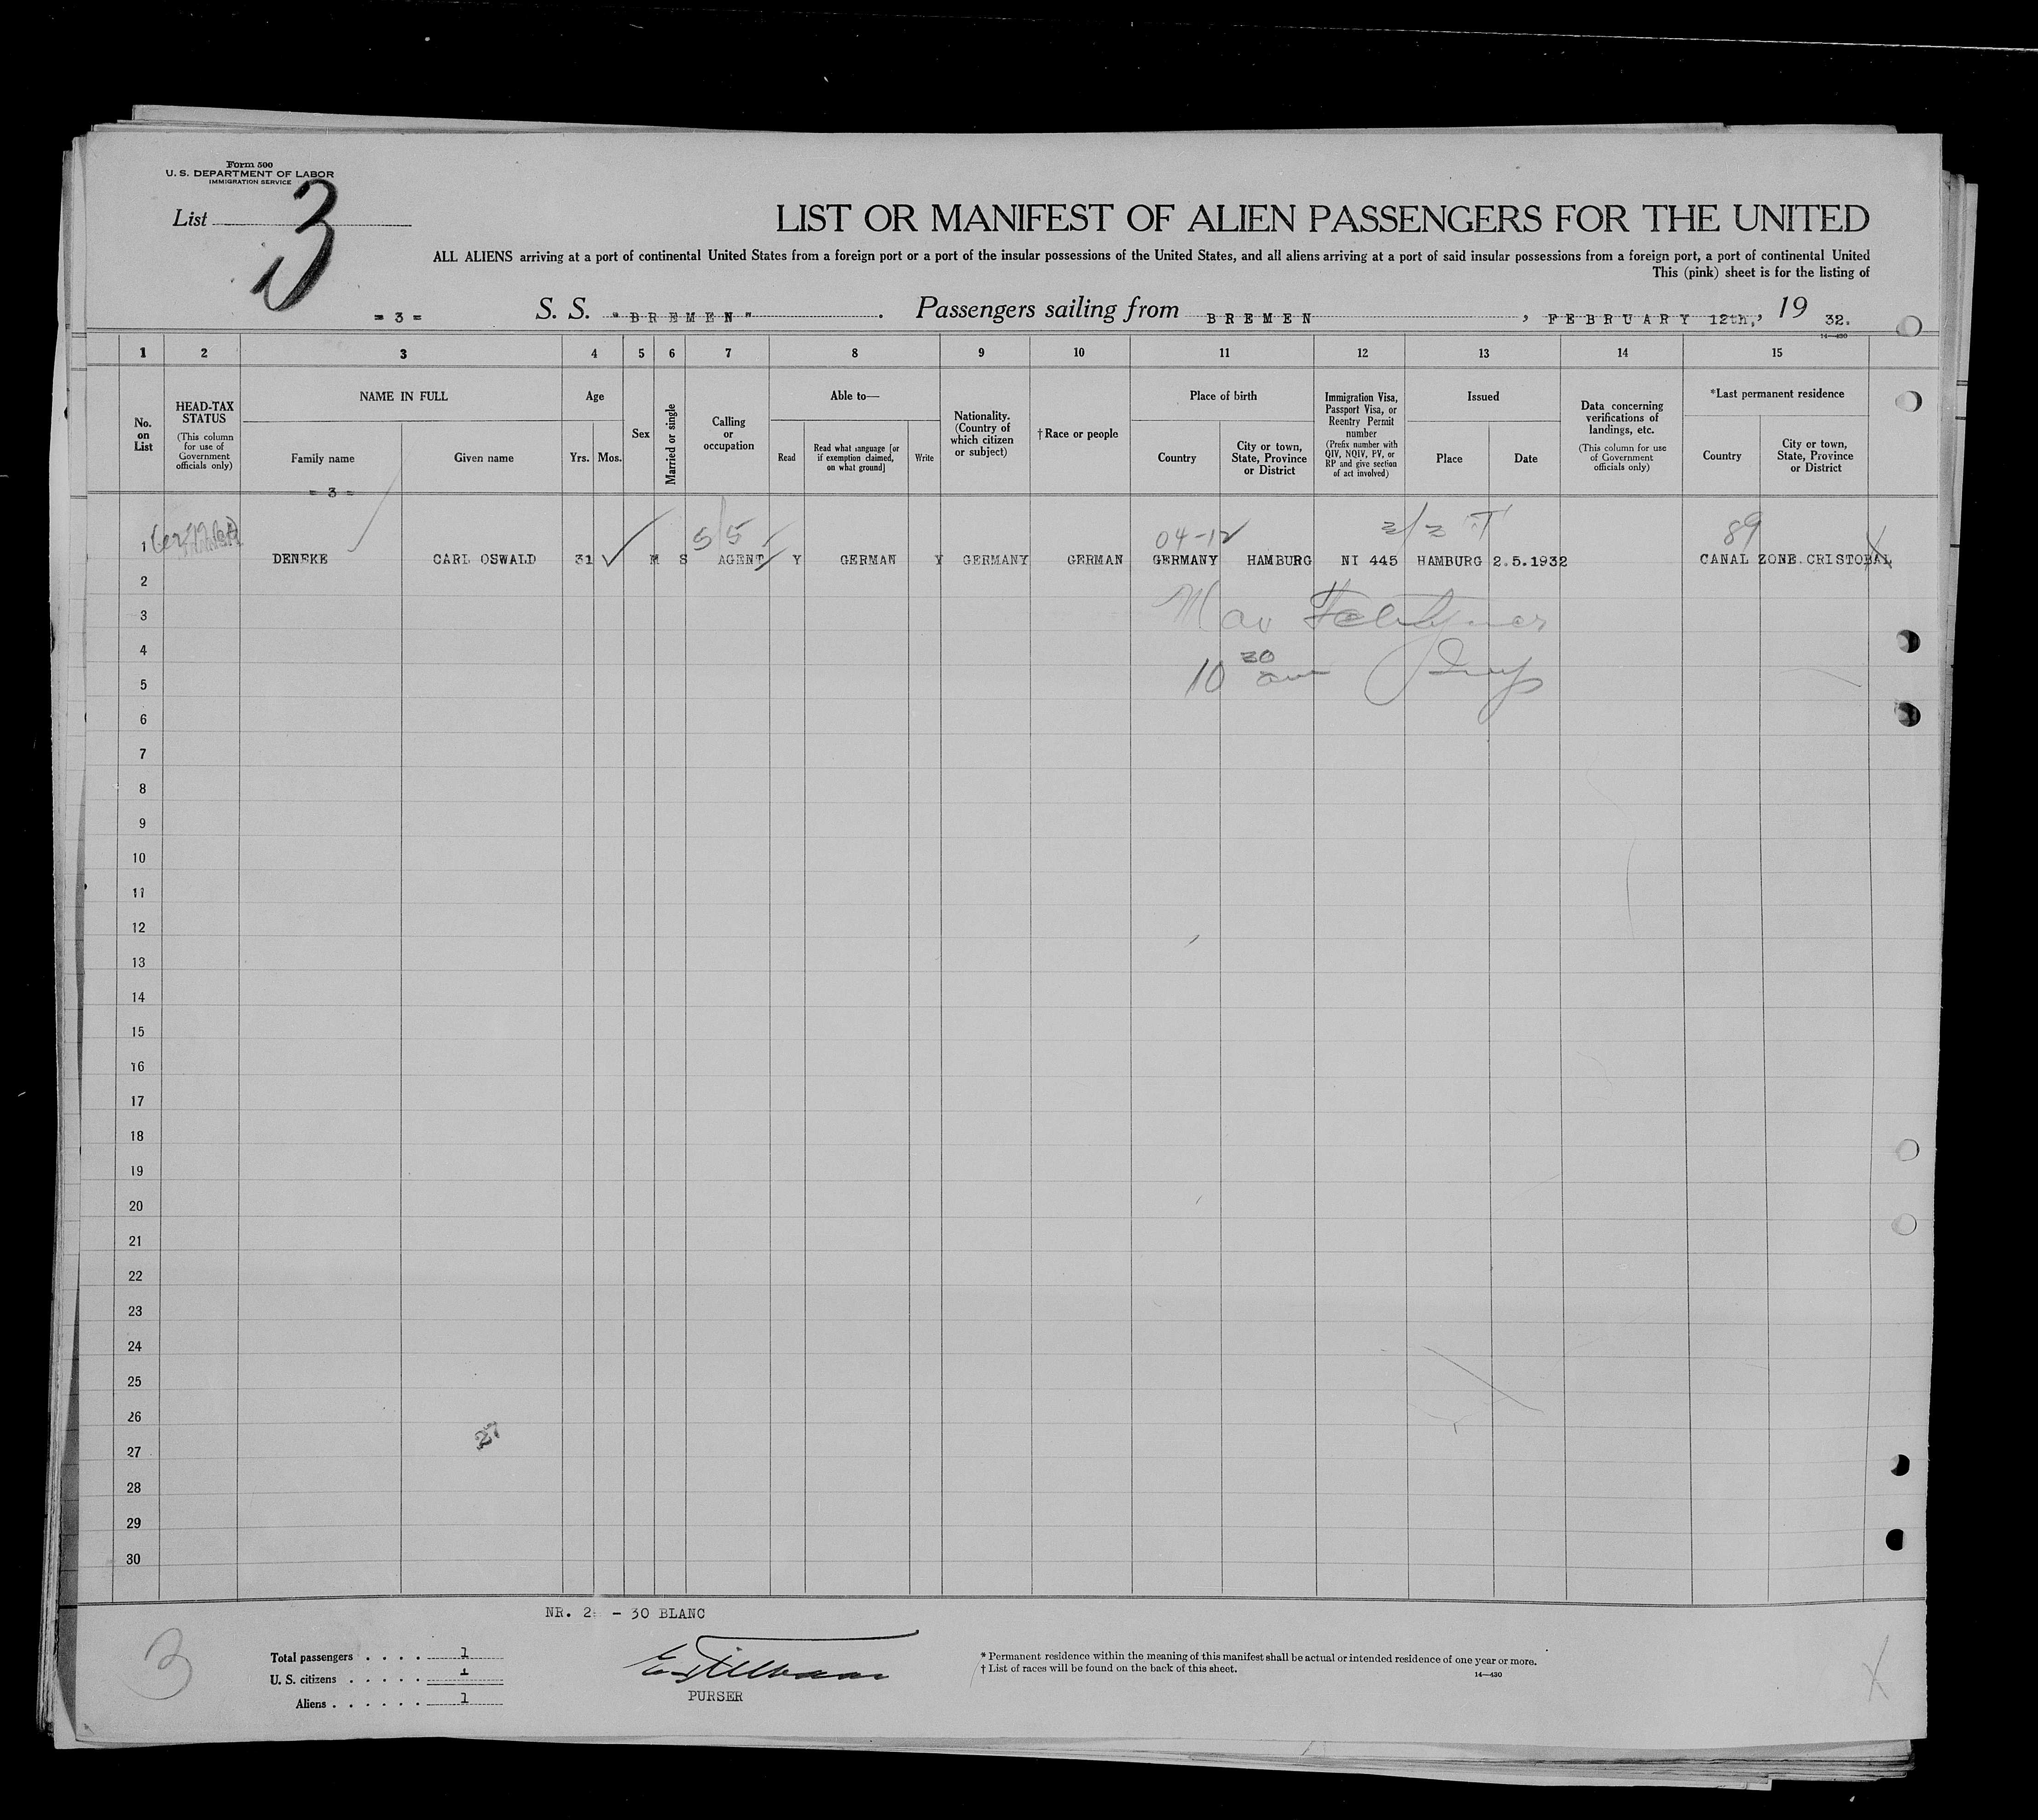 Form 500
U. S. DEPARTMENT OF LABOR
IMMIGRATION SERVICE
List 3
LIST OR MANIFEST OF ALIEN PASSENGERS FOR THE UNITED
ALL ALIENS arriving at a port of continental United States from a foreign port or a port of the insular possessions of the United States, and all aliens arriving at a port of said insular possessions from a foreign port, a port of continental United
This (pink) sheet is for the listing of
= 3 = S. S. "BREMEN". Passengers sailing from BREMEN, FEBRUARY 12th, 19 32.
14—430
1 2 3 4 5 6 7 8 9 10 11 12 13 14 15
No. on List
HEAD-TAX STATUS
(This column for use of Government officials only)
NAME IN FULL
Family name
Given name
Age
Yrs.
Mos.
Sex
Married or single
Calling or occupation
Able to—
Read
Read what language [or if exemption claimed, on what ground]
Write
Nationality. (Country of which citizen or subject)
†Race or people
Place of birth
Country
City or town, State, Province or District
Immigration Visa, Passport Visa, or Reentry Permit number
(Prefix number with QIV, NQIV, PV, or RP and give section of act involved)
Issued
Place
Date
Data concerning verifications of landings, etc.
(This column for use of Government officials only)
*Last permanent residence
Country
City or town, State, Province or District
= 3 =
55 04-12 89
1 DENEKE CARL OSWALD 31 M S AGENT Y GERMAN Y GERMANY GERMAN GERMANY HAMBURG NI 445 HAMBURG 2.5.1932 CANAL ZONE CRISTOBAL
2
3
4
10 30 am
5
6
7
8
9
10
11
12
13
14
15
16
17
18
19
20
21
22
23
24
25
26
27
27
28
29
30
NR. 2 - 30 BLANC
3
Total passengers . . . . 1
U. S. citizens . . . . . 1
Aliens . . . . . . 1
PURSER
* Permanent residence within the meaning of this manifest shall be actual or intended residence of one year or more.
† List of races will be found on the back of this sheet.
14—430
X